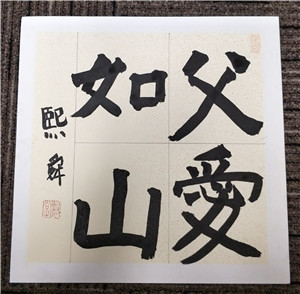 父愛
如山
熙舜